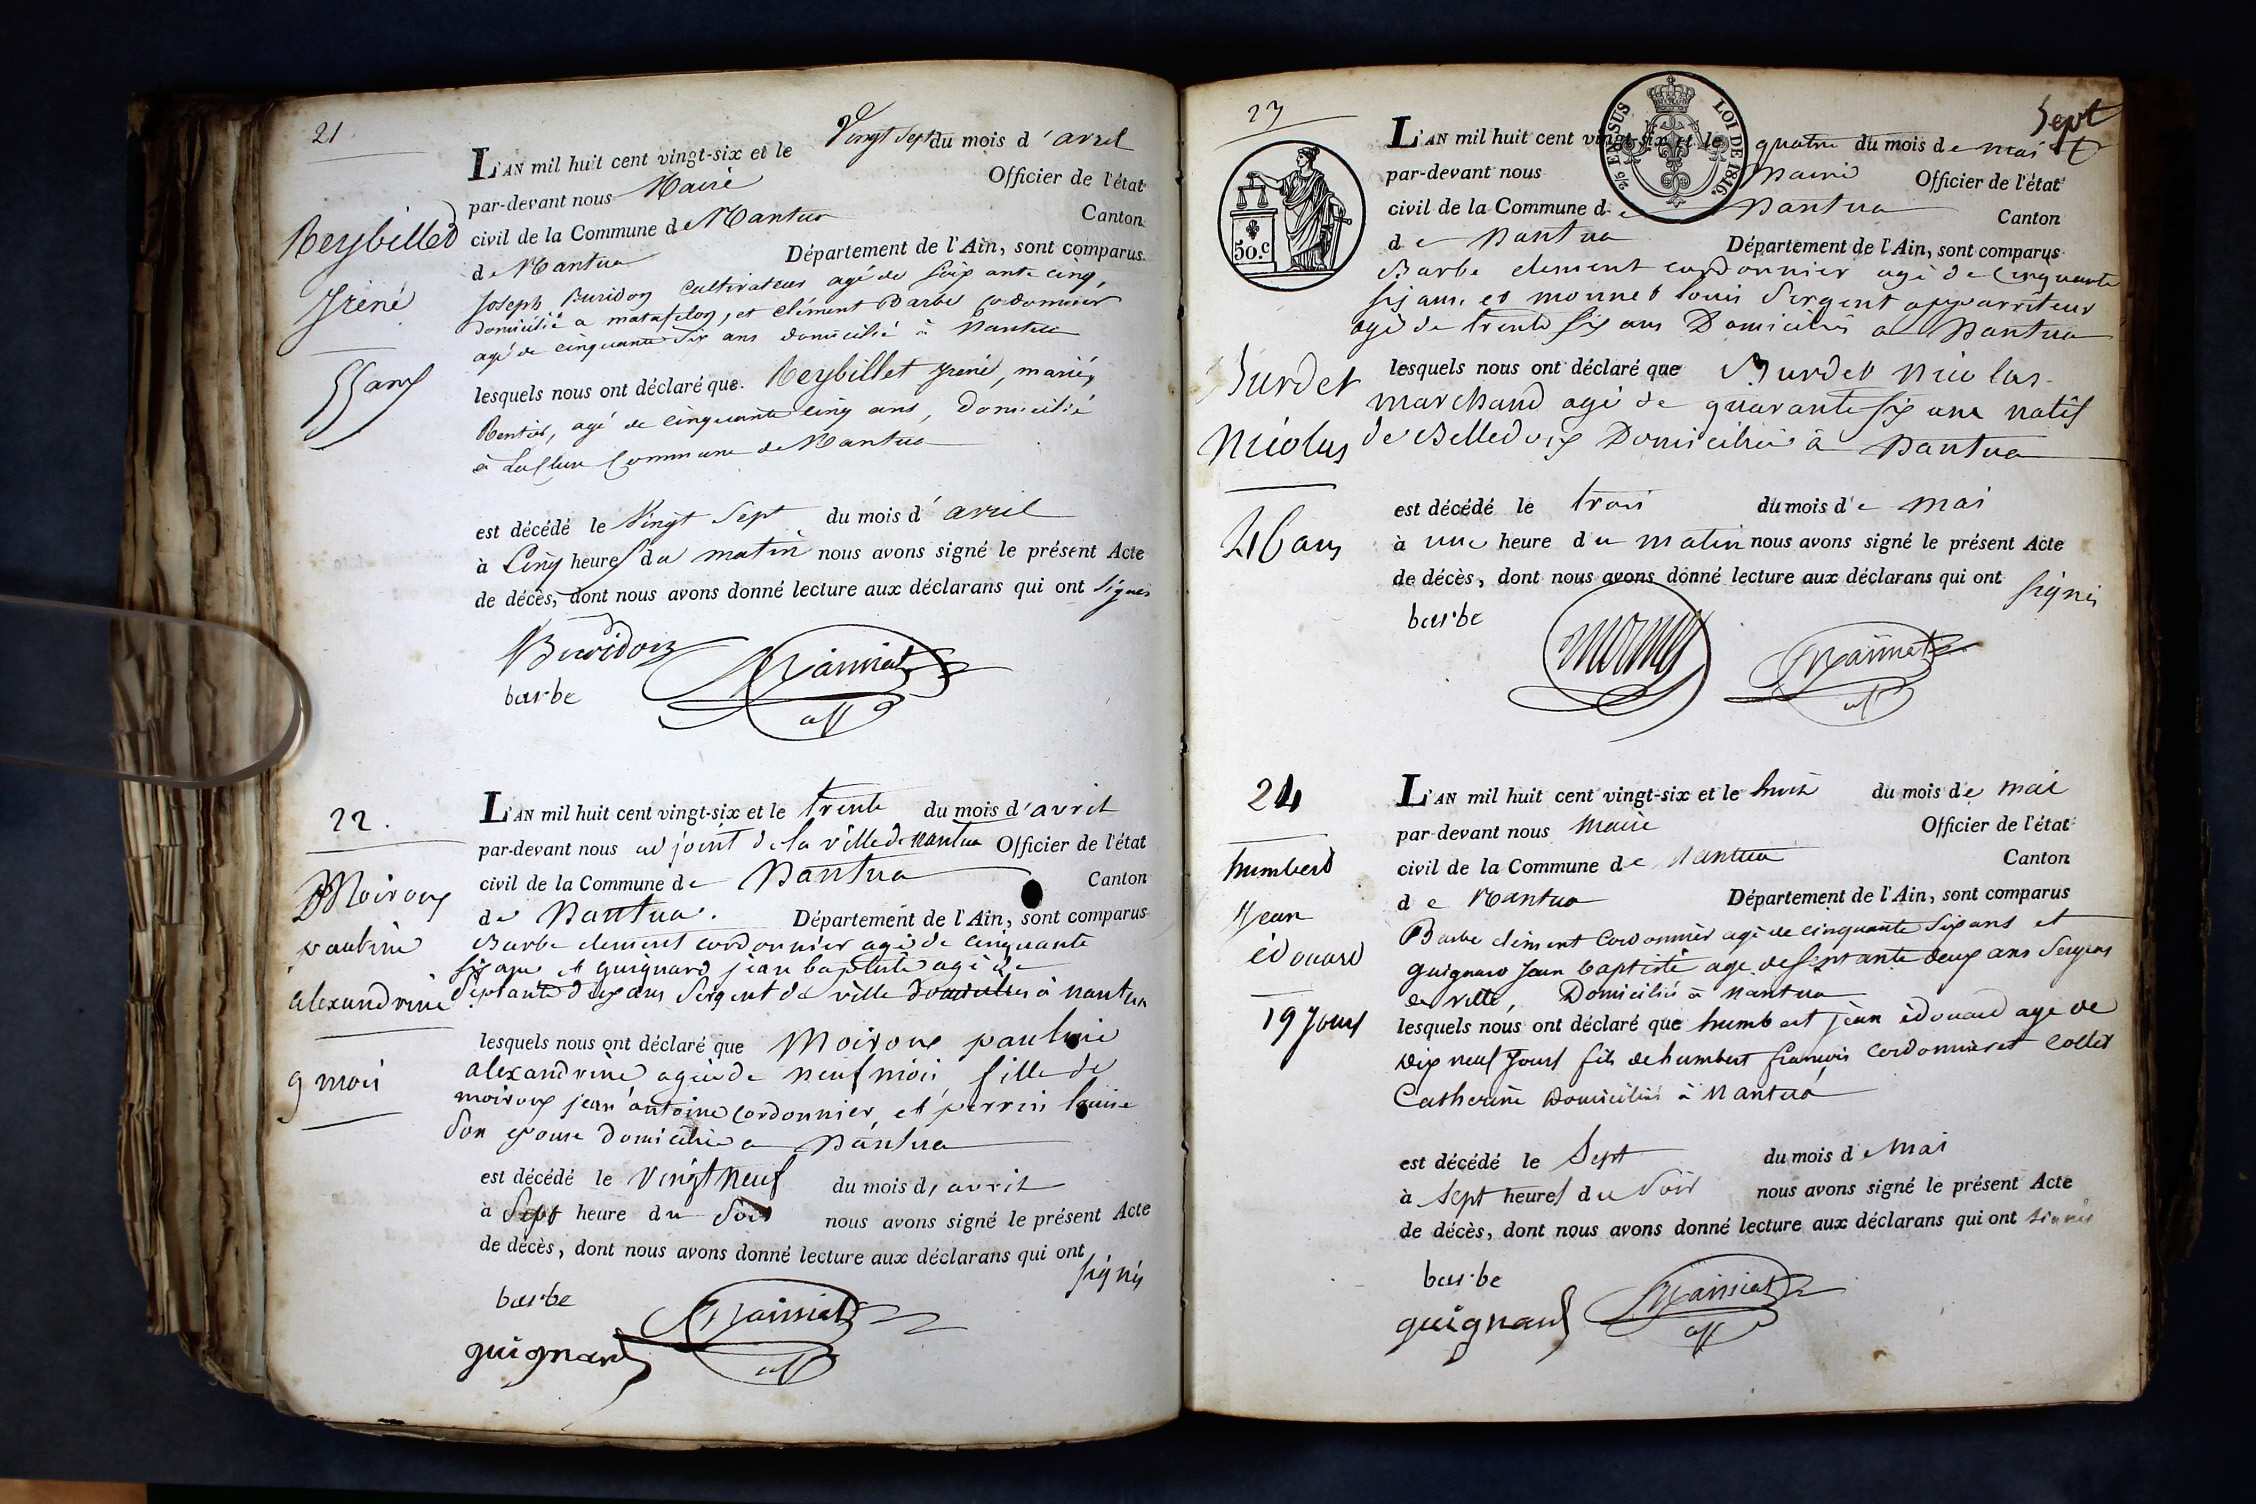 21
Reybilled
Iréné
55 ans
L'AN mil huit cent vingt-six et le Vingt Sept du mois d'avril
par-devant nous Maire Officier de l'état
civil de la Commune de Nantua Canton
de Nantua Département de l'Ain, sont comparus
Joseph Buridon cultivateur agé de soixante cinq,
domicilié a matafelon, et clément Barbe Cordonnier
agé de cinquante six ans domicilié à Nantua
lesquels nous ont déclaré que Reybillet Iréné, marié,
Rentier, agé de cinquante cinq ans, domicilié
à LaCluse Commune de Nantua
est décédé le Vingt Sept du mois d'avril
à Cinq heures du matin nous avons signé le présent Acte
de décès, dont nous avons donné lecture aux déclarans qui ont signés
Buridon
barbe
22.
Moiroux
pauline
alexandrine
9 mois
L'AN mil huit cent vingt-six et le trente du mois d'avril
par-devant nous adjoint de la ville de nantua Officier de l'état
civil de la Commune de Nantua Canton
de Nantua. Département de l'Ain, sont comparus
Barbe clement cordonnier agé de cinquante
six ans et guignard jean baptiste agé de
Septante deux ans Sergent de ville domiciliés à nantua
lesquels nous ont déclaré que Moiroux pauline
alexandrine agée de neuf mois fille de
moiroux jean antoine cordonnier et perrin louise
Son epouse domicilié a Nantua
est décédé le vingt neuf du mois d'avril
à Sept heure du Soir nous avons signé le présent Acte
de décès, dont nous avons donné lecture aux déclarans qui ont
signés
barbe
guignard
Sept
23
5/2 EN SUS
LOI DE 1816
50.c
Burdet
Nicolas
46 ans
L'AN mil huit cent vingt-six et le quatre du mois de mai
par-devant nous Maire Officier de l'état
civil de la Commune de Nantua Canton
de Nantua Département de l'Ain, sont comparus
Barbe clement cordonnier agé de Cinquante
six ans et monnet louis Sergent apparriteur
agé de trente six ans Domiciliés a Nantua
lesquels nous ont déclaré que Burdet Nicolas
marchand agé de quarante six ans natif
de Belledoix Domicilié à Nantua
est décédé le trois du mois de mai
à une heure du matin nous avons signé le présent Acte
de décès, dont nous avons donné lecture aux déclarans qui ont
signés
barbe
24
humbert
Jean
édouard
19 Jours
L'AN mil huit cent vingt-six et le huit du mois de mai
par-devant nous Maire Officier de l'état
civil de la Commune de Nantua Canton
de Nantua Département de l'Ain, sont comparus
Barbe clément Cordonnier agé de cinquante Six ans et
guignard Jean baptiste agé de septante deux ans Sergens
de ville, Domiciliés à Nantua
lesquels nous ont déclaré que humbert jean édouard age de
dix neuf Jours fils de humbert françois cordonnier et Collet
Catherine Domiciliés à Nantua
est décédé le Sept du mois de Mai
à Sept heures du Soir nous avons signé le présent Acte
de décès, dont nous avons donné lecture aux déclarans qui ont signés
barbe
guignard